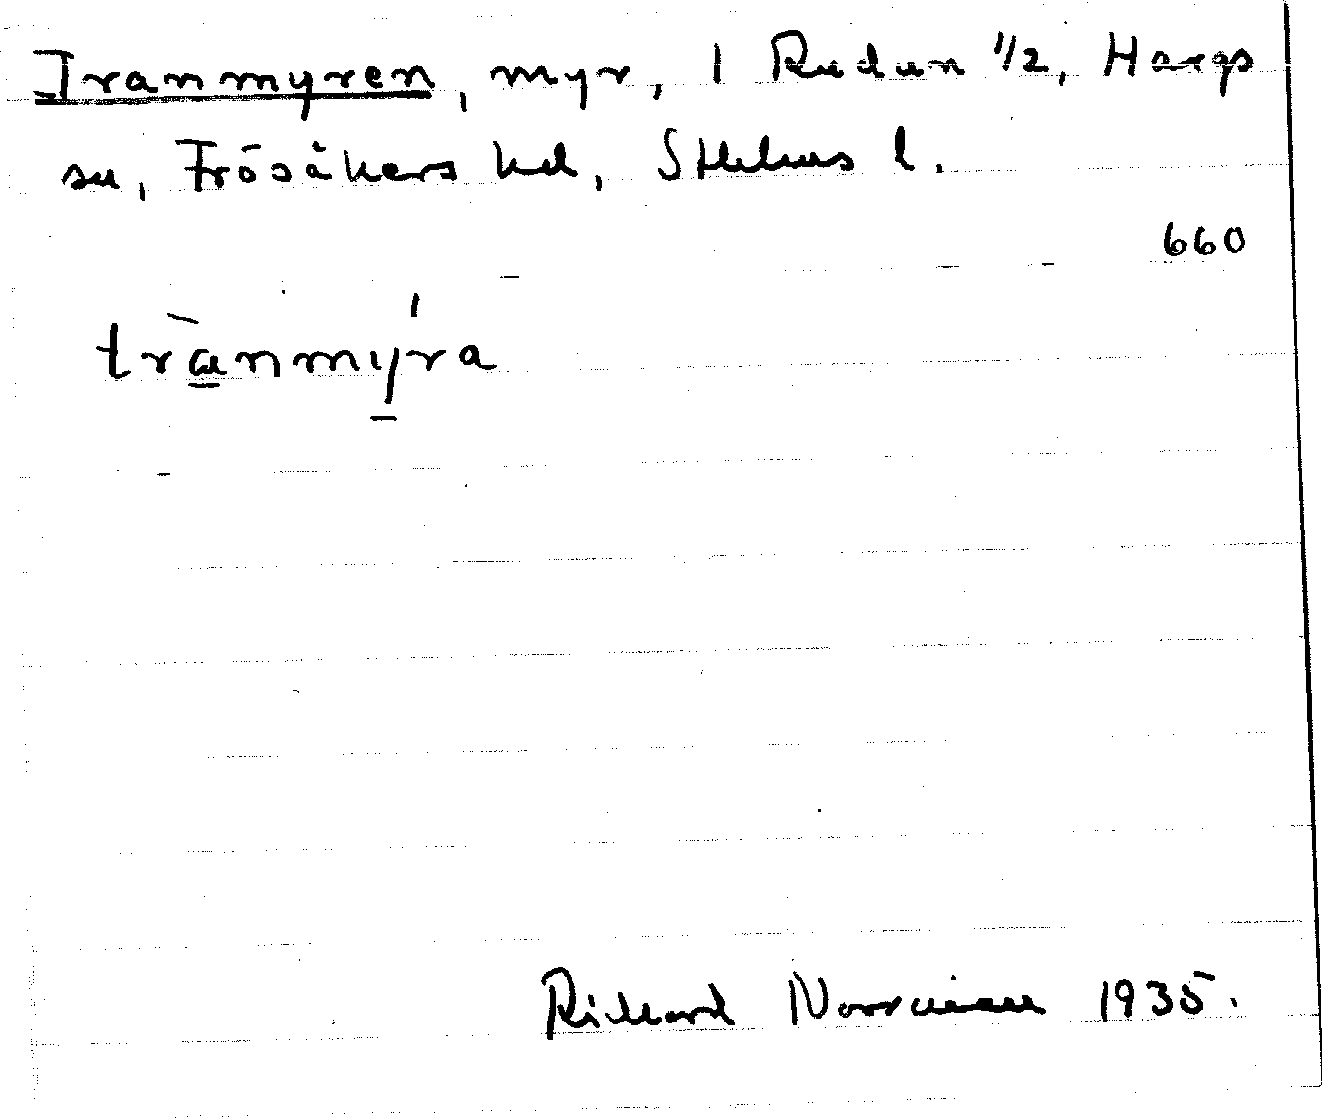 Tranmyren, myr, 1 Rudun 1/2, Hargs
sn, Frösåkers hd, Sthlms l.
660
trànmýra
Richard Norrman 1935.